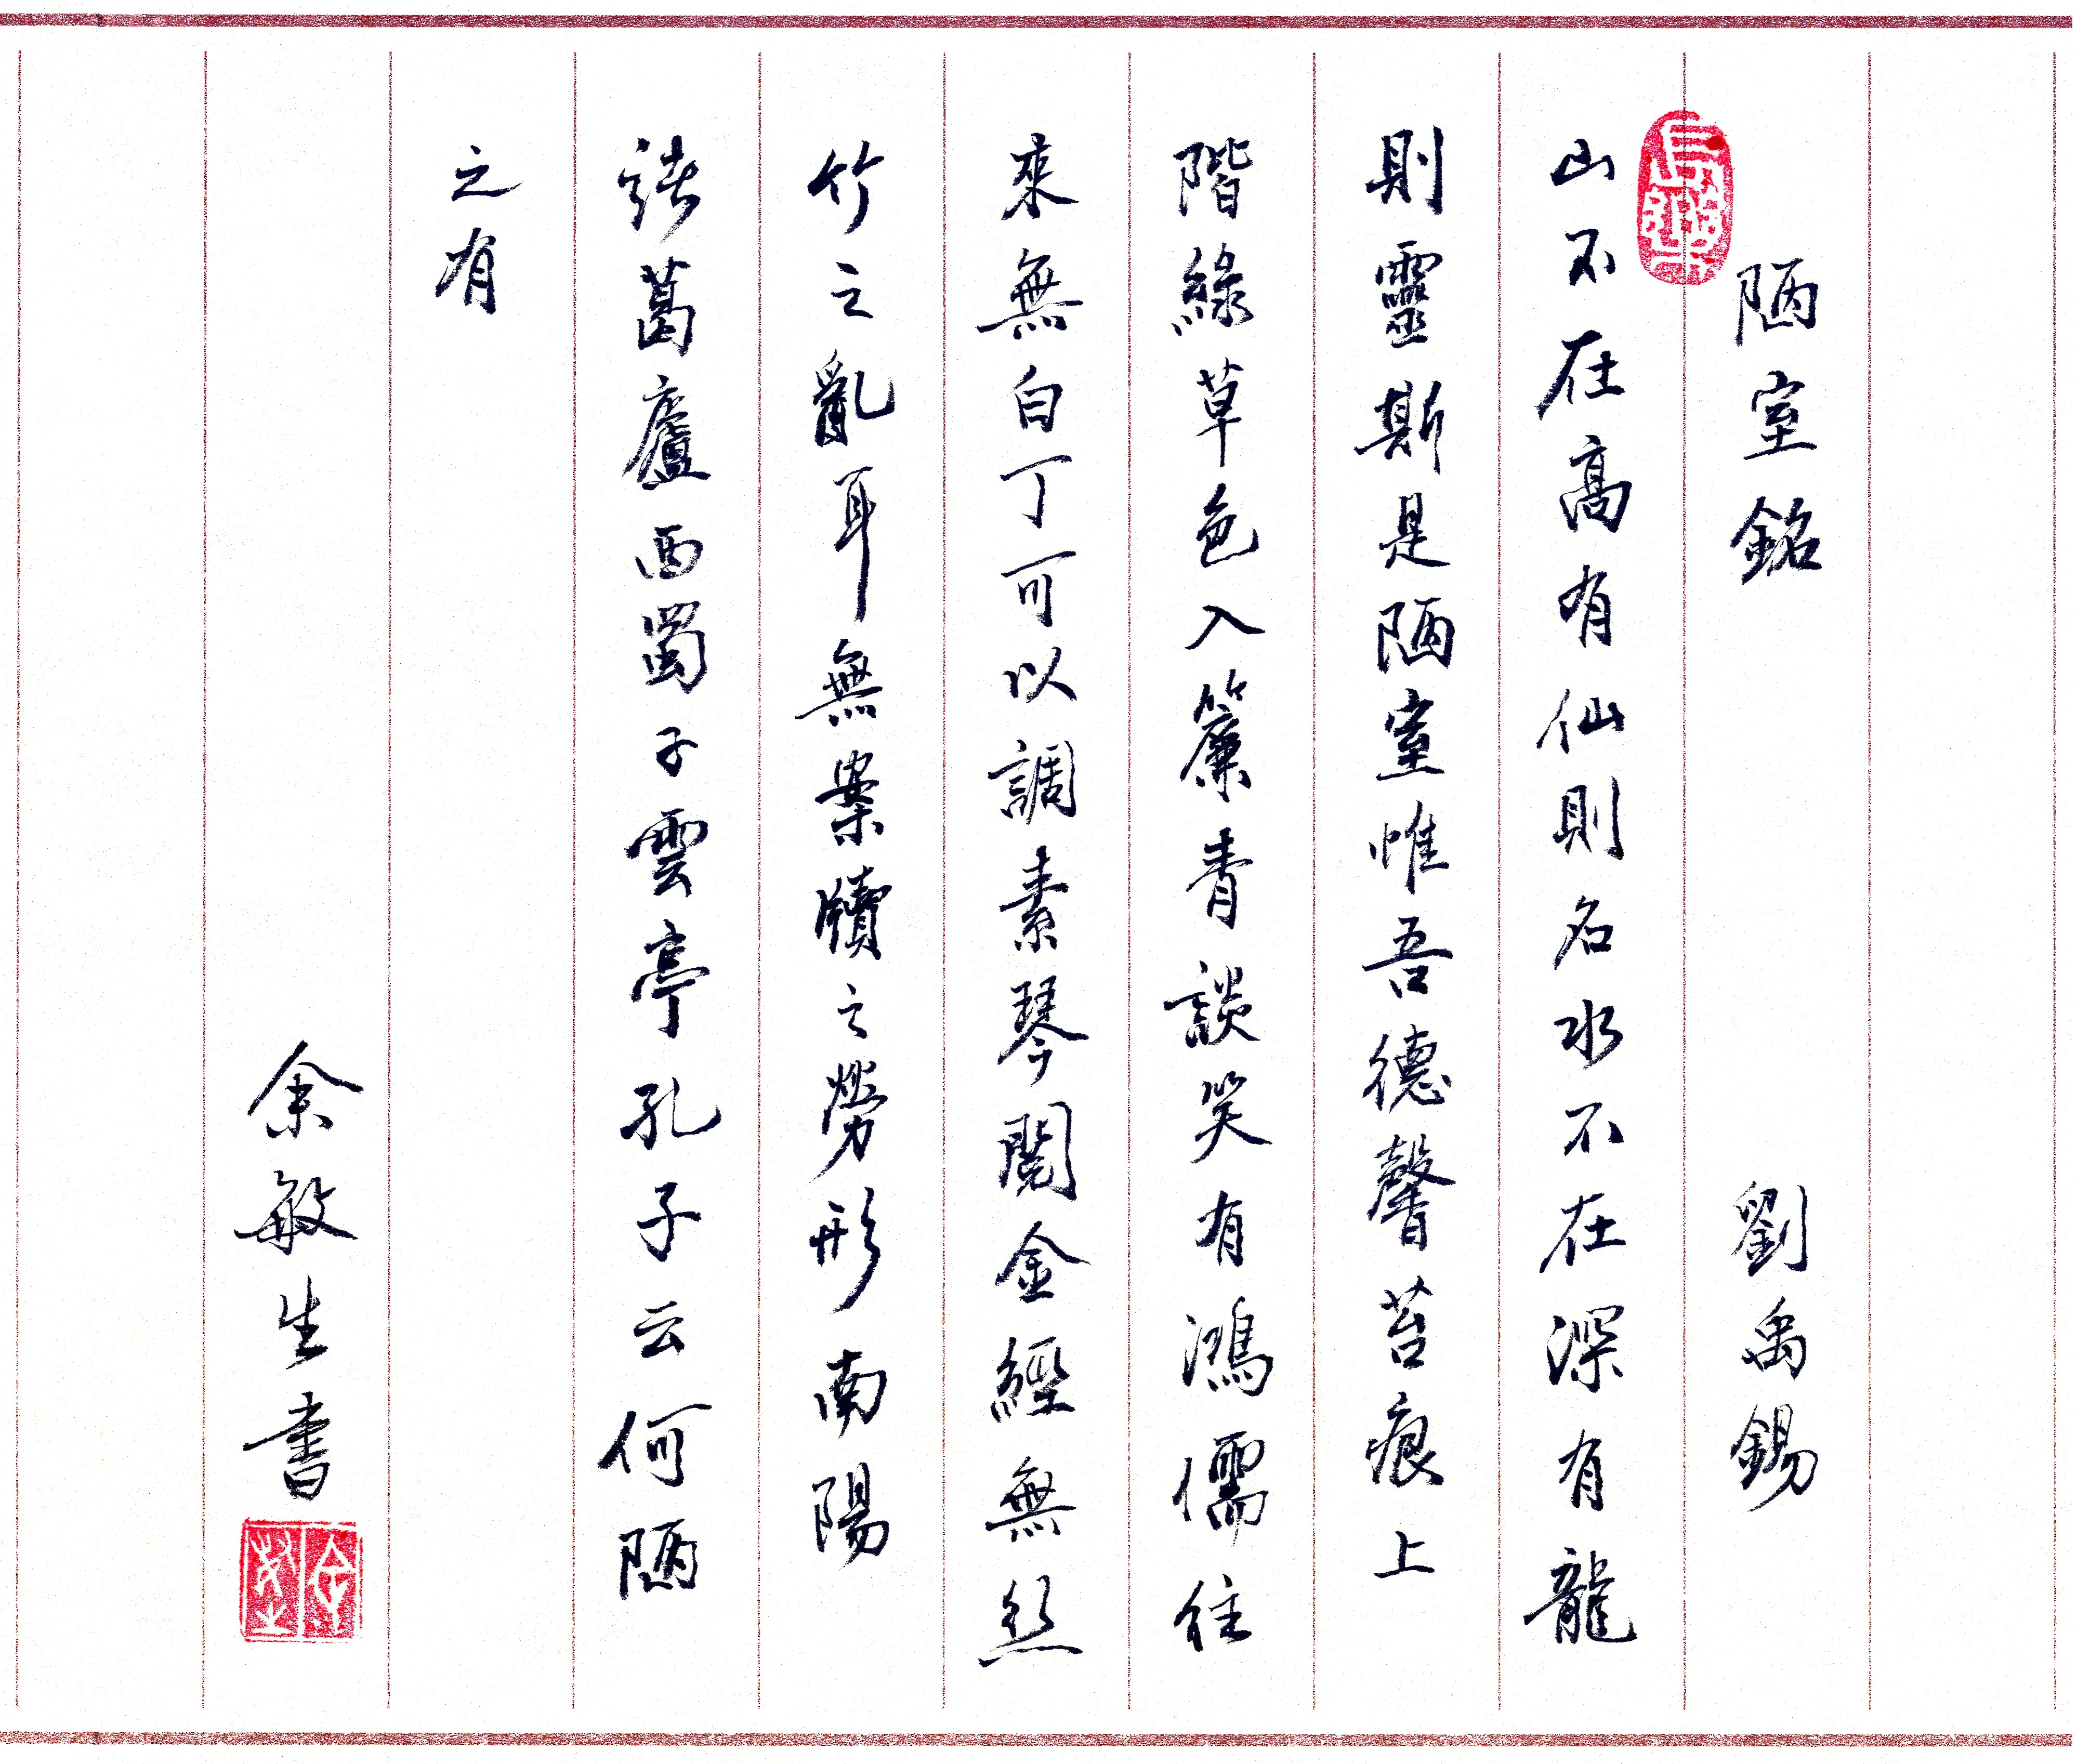 陋室銘 劉禹錫
山不在高有仙則名水不在深有龍
則靈斯是陋室惟吾德馨苔痕上
階綠草色入簾青談笑有鴻儒往
來無白丁可以調素琴閱金經無絲
竹之亂耳無案牘之勞形南陽
諸葛廬西蜀子雲亭孔子云何陋
之有
余敏生書